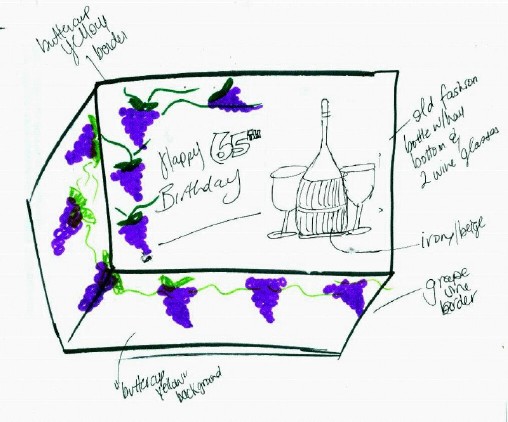 buttercup
yellow
border
Happy 65th
Birthday
old fashion
bottle w/hay
bottom &
2 wine glasses
ivory/beige
grape
vine
border
"buttercup
yellow"
background